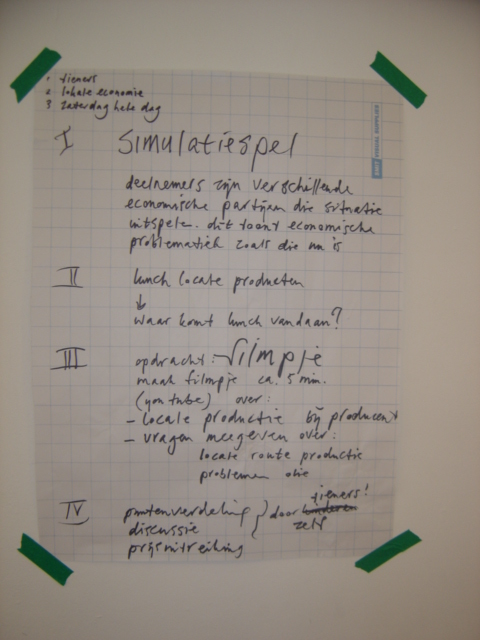 1 tieners
2 lokale economie
3 zaterdag hele dag
I simulatiespel
deelnemers zijn verschillende
economische partijen die situatie
uitspelen. dit toont economische
problematiek zoals die nu is
II lunch locale producten
↓
waar komt lunch vandaan?
III opdracht: filmpje
maak filmpje ca. 5 min.
(youtube) over:
- locale productie bij producent
- vragen meegeven over:
locale route productie
problemen olie
tieners!
IV puntenverdeling } door kinderen
discussie zelf
prijsuitreiking
VISUAL SUPPLIES